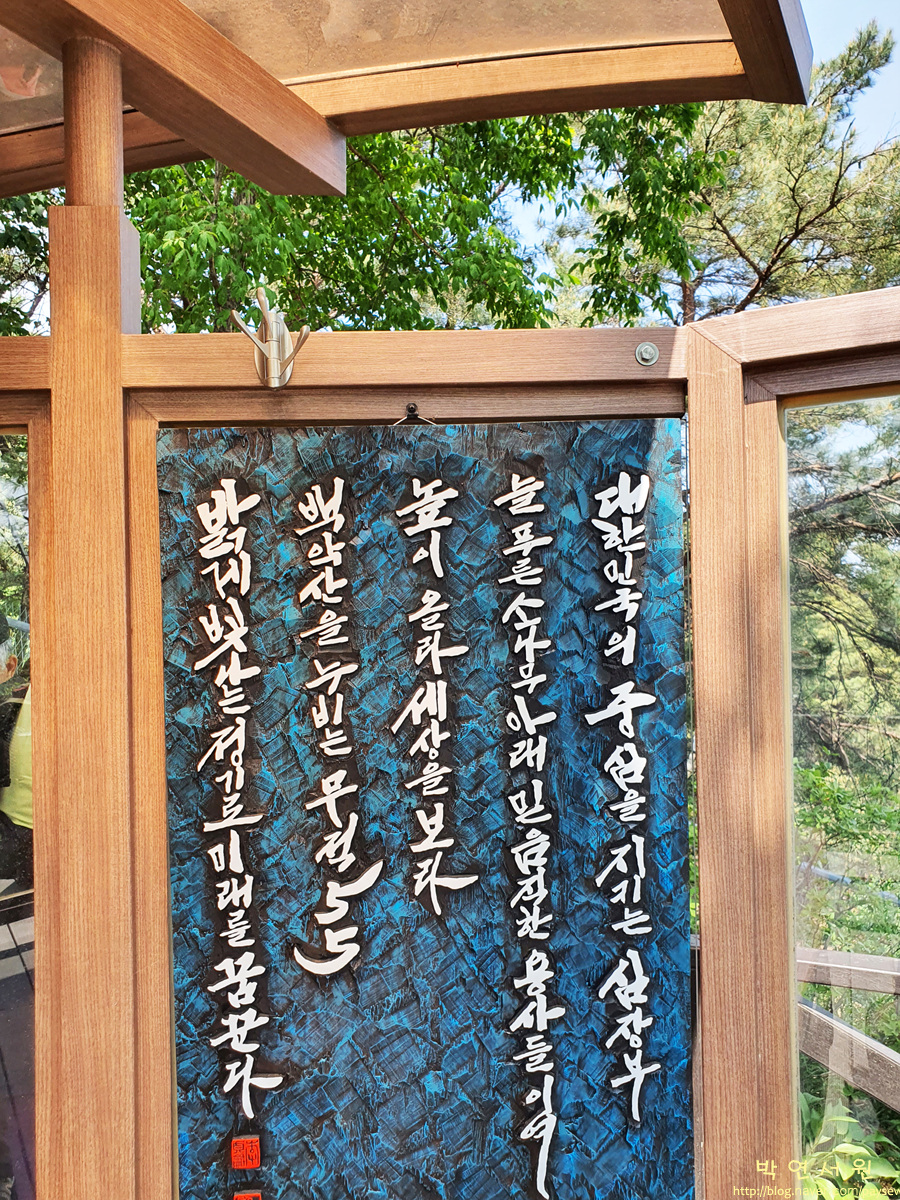 대한민국의 중심을 지키는 심장부
늘 푸른 소나무 아래 믿음직한 용사들이여
높이 올라 세상을 보라
백악산을 누비는 무적 55
밝게 빛나는 정기로 미래를 꿈꾼다
박 연 서 원